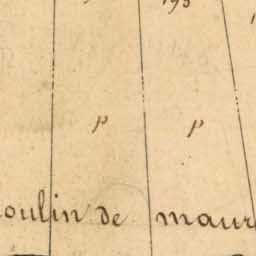 195
p p
oulin de maur